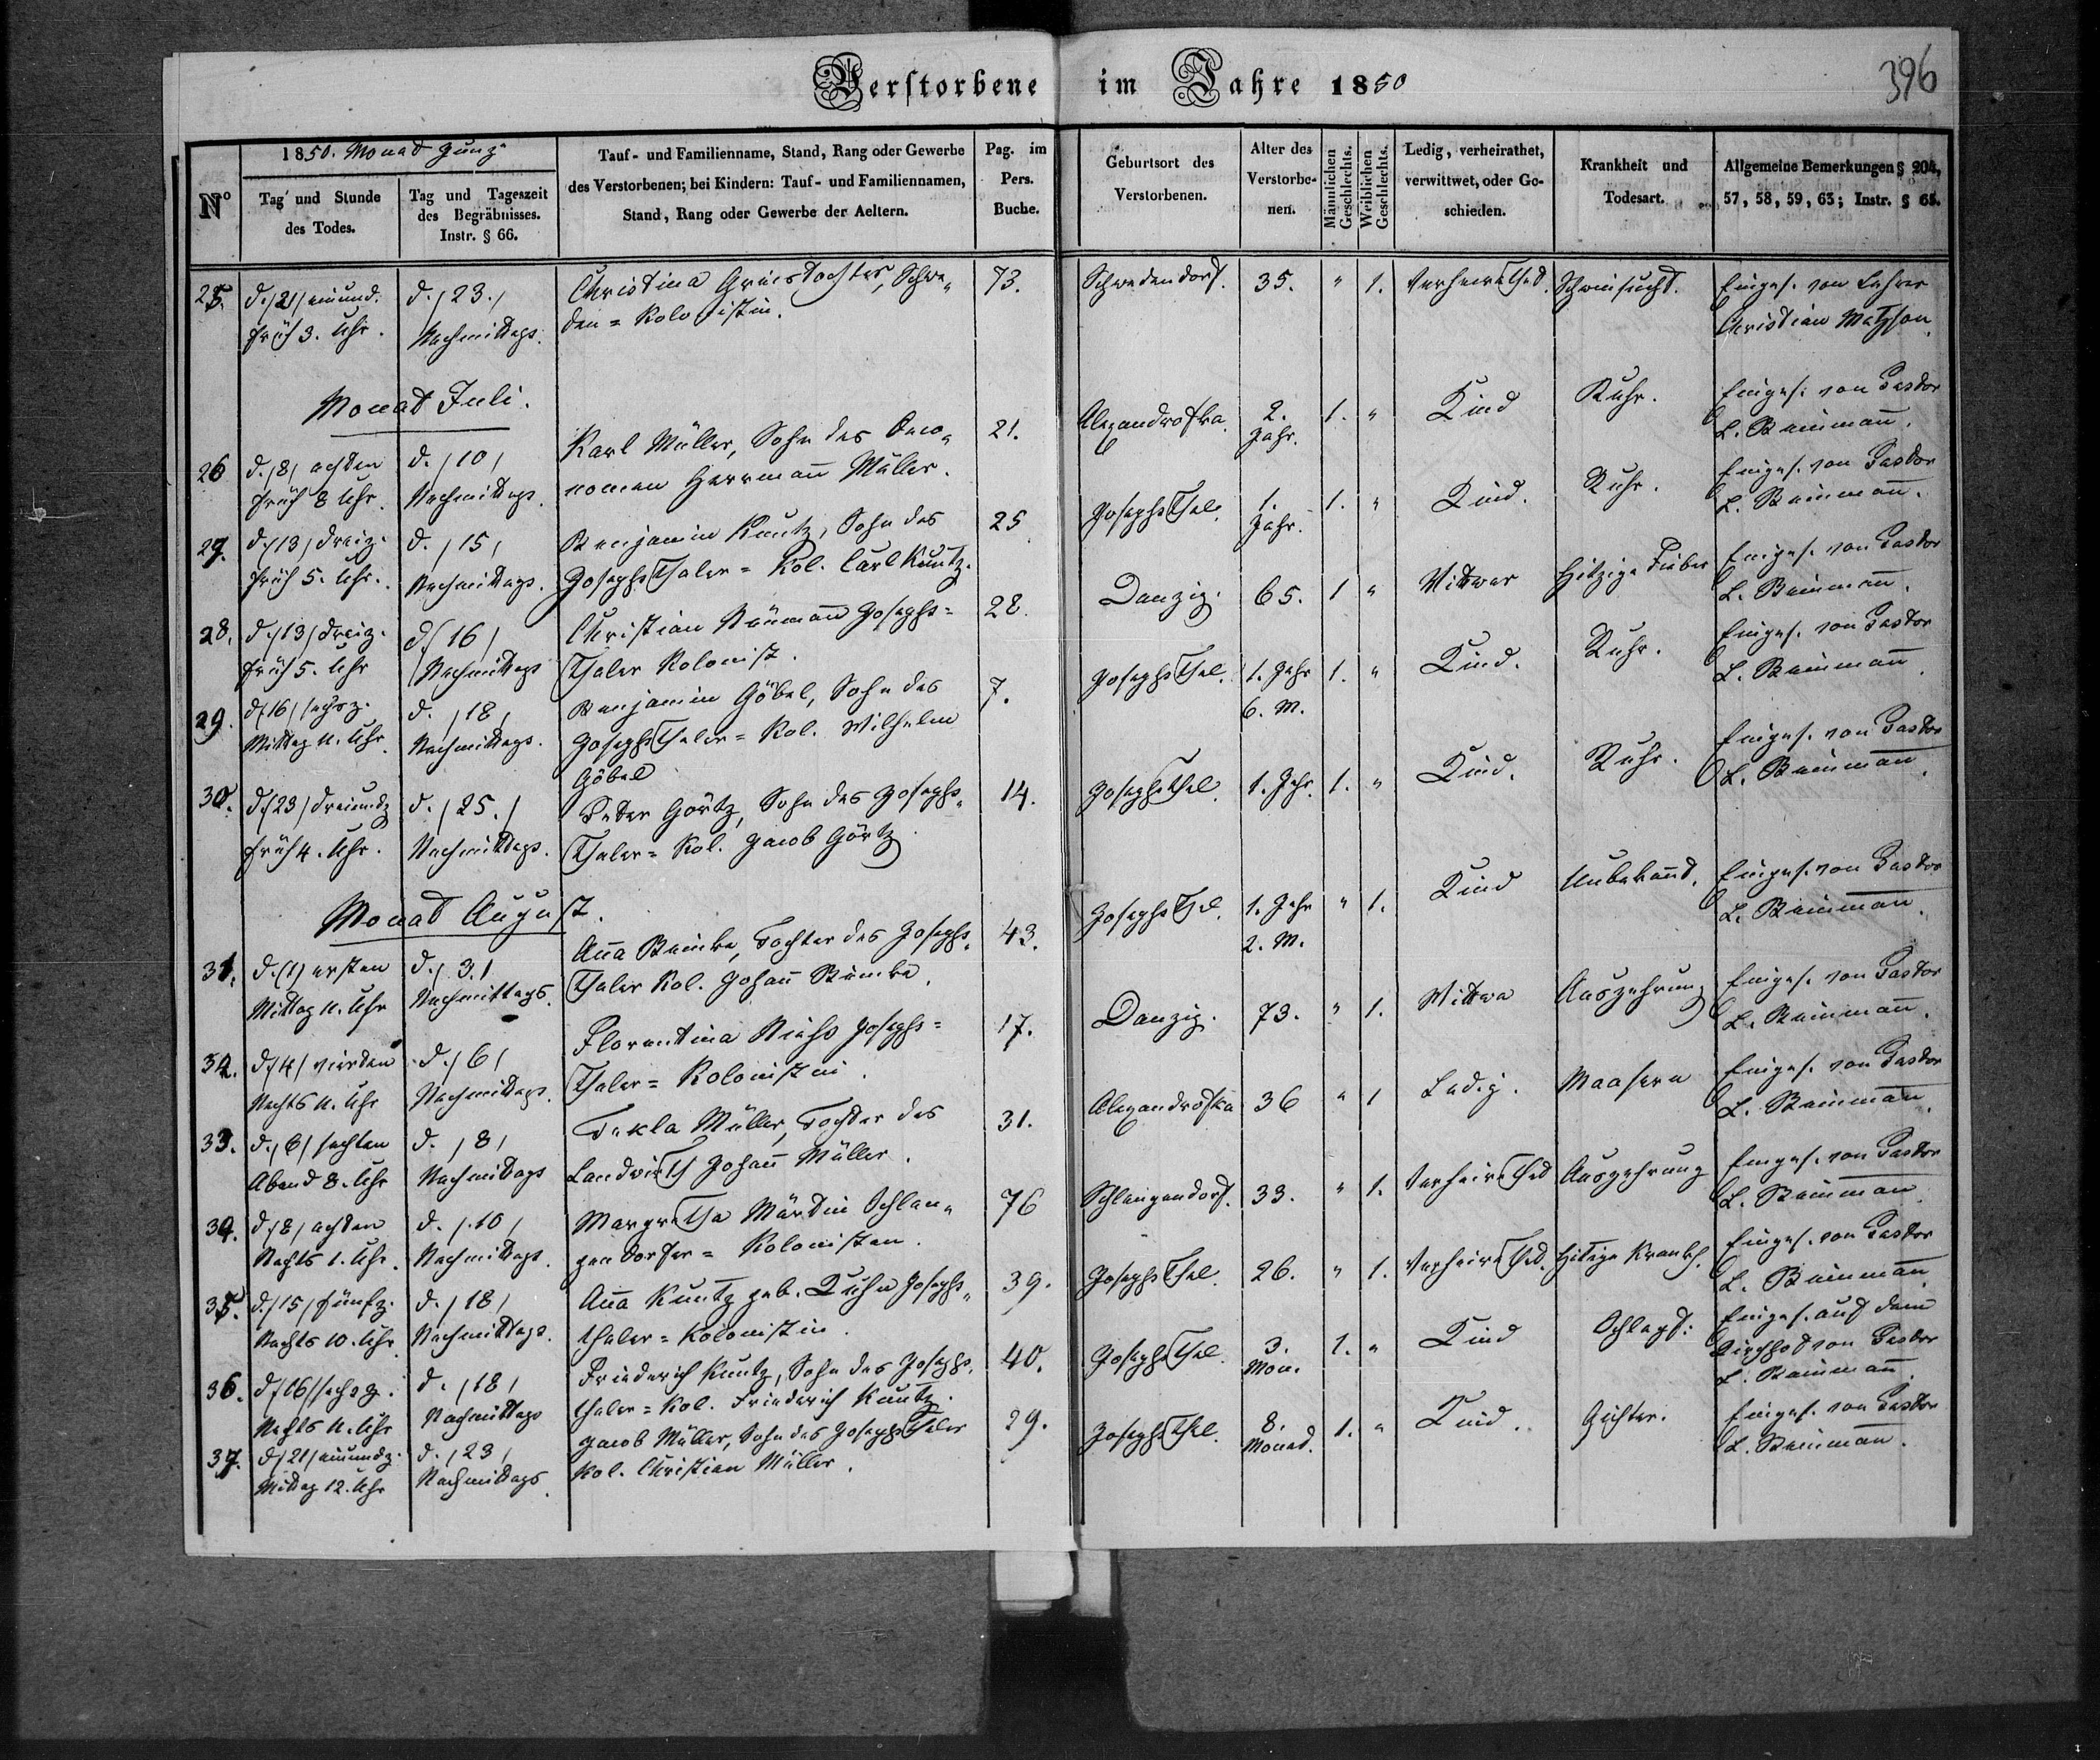 Verstorbene im Jahre 1850
396
No
1850. Monad Junj
Tag und Stunde des Todes.
Tag und Tageszeit des Begräbnisses. Instr. § 66.
Tauf- und Familienname, Stand, Rang oder Gewerbe des Verstorbenen; bei Kindern: Tauf- und Familiennamen, Stand, Rang oder Gewerbe der Aeltern.
Pag. im Pers. Buche.
Geburtsort des Verstorbenen.
Alter des Verstorbenen.
Männlichen Geschlechts.
Weiblichen Geschlechts.
Ledig, verheirathet, verwittwet, oder Geschieden.
Krankheit und Todesart.
Allgemeine Bemerkungen § 204, 57, 58, 59, 63; Instr. § 65.
25. d. /21/ einund. d. /23./ Christina Griesdochter, Schwe„ 73. Schwedendorf. 35. " 1. Verheirathed. Schwinsucht. Einges. von Lehrer
früh 3. Uhr. Nachmittags. den = Kolonistin. Christian Matzson.
Monad Juli.
26 d. /8/ achten d. /10/ Karl Müller, Sohn des Oeco„ 21. Alexandrofka. 2. Jahr. 1. " Kind Ruhr. Einges. von Pastor
früh 8 Uhr. Nachmittags. nomen Herrmann Müller. L. Beinmann.
27. d. /13/ dreiz. d. /15/ Benjamin Kuntz, Sohn des 25 Josephsthal. 1. Jahr. 1. " Kind. Ruhr. Einges. von Pastor
früh 5. Uhr. Nachmittags. Josephsthaler = Kol. Carl Kuntz. L. Beinmann.
28. d. /13/ dreiz. d. /16/ Christian Neumann Josephs= 28. Danzig. 65. 1 " Wittwer Hitzige Fieber Einges. von Pastor
früh 5. Uhr Nachmittags thaler Kolonist. L. Beinmann.
29. d. /16/ sechz. d. /18/ Benjamin Göbel, Sohn des 7. Josephsthal. 1. Jahr 6. M. 1. " Kind. Ruhr. Einges. von Pastor
Mittag 11. Uhr. Nachmittags. Josephsthaler = Kol. Wilhelm L. Beinmann.
Göbel
30. d. /23/ dreiundz d. /25./ Peter Görtz, Sohn des Josephs„ 14. Josephsthal. 1. Jahr. 1. " Kind. Ruhr. Einges. von Pastor
früh 4. Uhr. Nachmittags. thaler = Kol. Jacob Görtz. L. Beinmann.
Monad August.
31. d. (1) ersten d. /3./ Anna Beinke, Tochter des Josephs„ 43. Josephsthal. 1. Jahr 2. M. " 1. Kind Unbekannd. Einges. von Pastor
Mittag 11. Uhr Nachmittags. thaler Kol. Johann Beinke. L. Beinmann.
32. d. /4/ vierten d. /6/ Florentina Riehs Josephs= 17. Danzig. 73. " 1. Wittwe Auszehrung Einges. von Pastor
Nachts 11. Uhr Nachmittags. thaler = Kolonistin. L. Beinmann.
33. d. /6/ sechten d. /8/ Tekla Müller, Tochter des 31. Alexandrofka 36 " 1 Ledig. Maasern Einges. von Pastor
Abend 8. Uhr Nachmittags Landwirth Johann Müller. L. Beinmann.
34. d. /8/ achten d. /10/ Margretha Märtin Schlan„ 76 Schlangendorf. 33. " 1. Verheirathed Auszehrung Einges. von Pastor
Nachts 1. Uhr. Nachmittags. gendorfer = Kolonisten. L. Beinmann.
35. d. /15/ fünfz. d. /18/ Anna Kuntz geb. Kuhn Josephs„ 39. Josephsthal. 26. " 1. Verheirathed. Hitzige Krankh. Einges. von Pastor
Nachts 10. Uhr. Nachmittags. thaler = Kolonistin. L. Beinmann.
36. d. /16/ sechsz. d. /18/ Friederich Kuntz, Sohn des Josephs„ 40. Josephsthal. 3. Mon. 1. " Kind Schlagf: Einges. auf dem
Nachts 11. Uhr Nachmittags thaler = Kol. Friederich Kuntz. Kirchhof von Pastor
L. Beinmann.
37. d. /21/ einundz. d. /23/ Jacob Müller, Sohn des Josephsthaler 29. Josephsthal. 8. Monad. 1. " Kind. Gichter. Einges. von Pastor
Mittag 12. Uhr Nachmittags. Kol. Christian Müller. L. Beinmann.